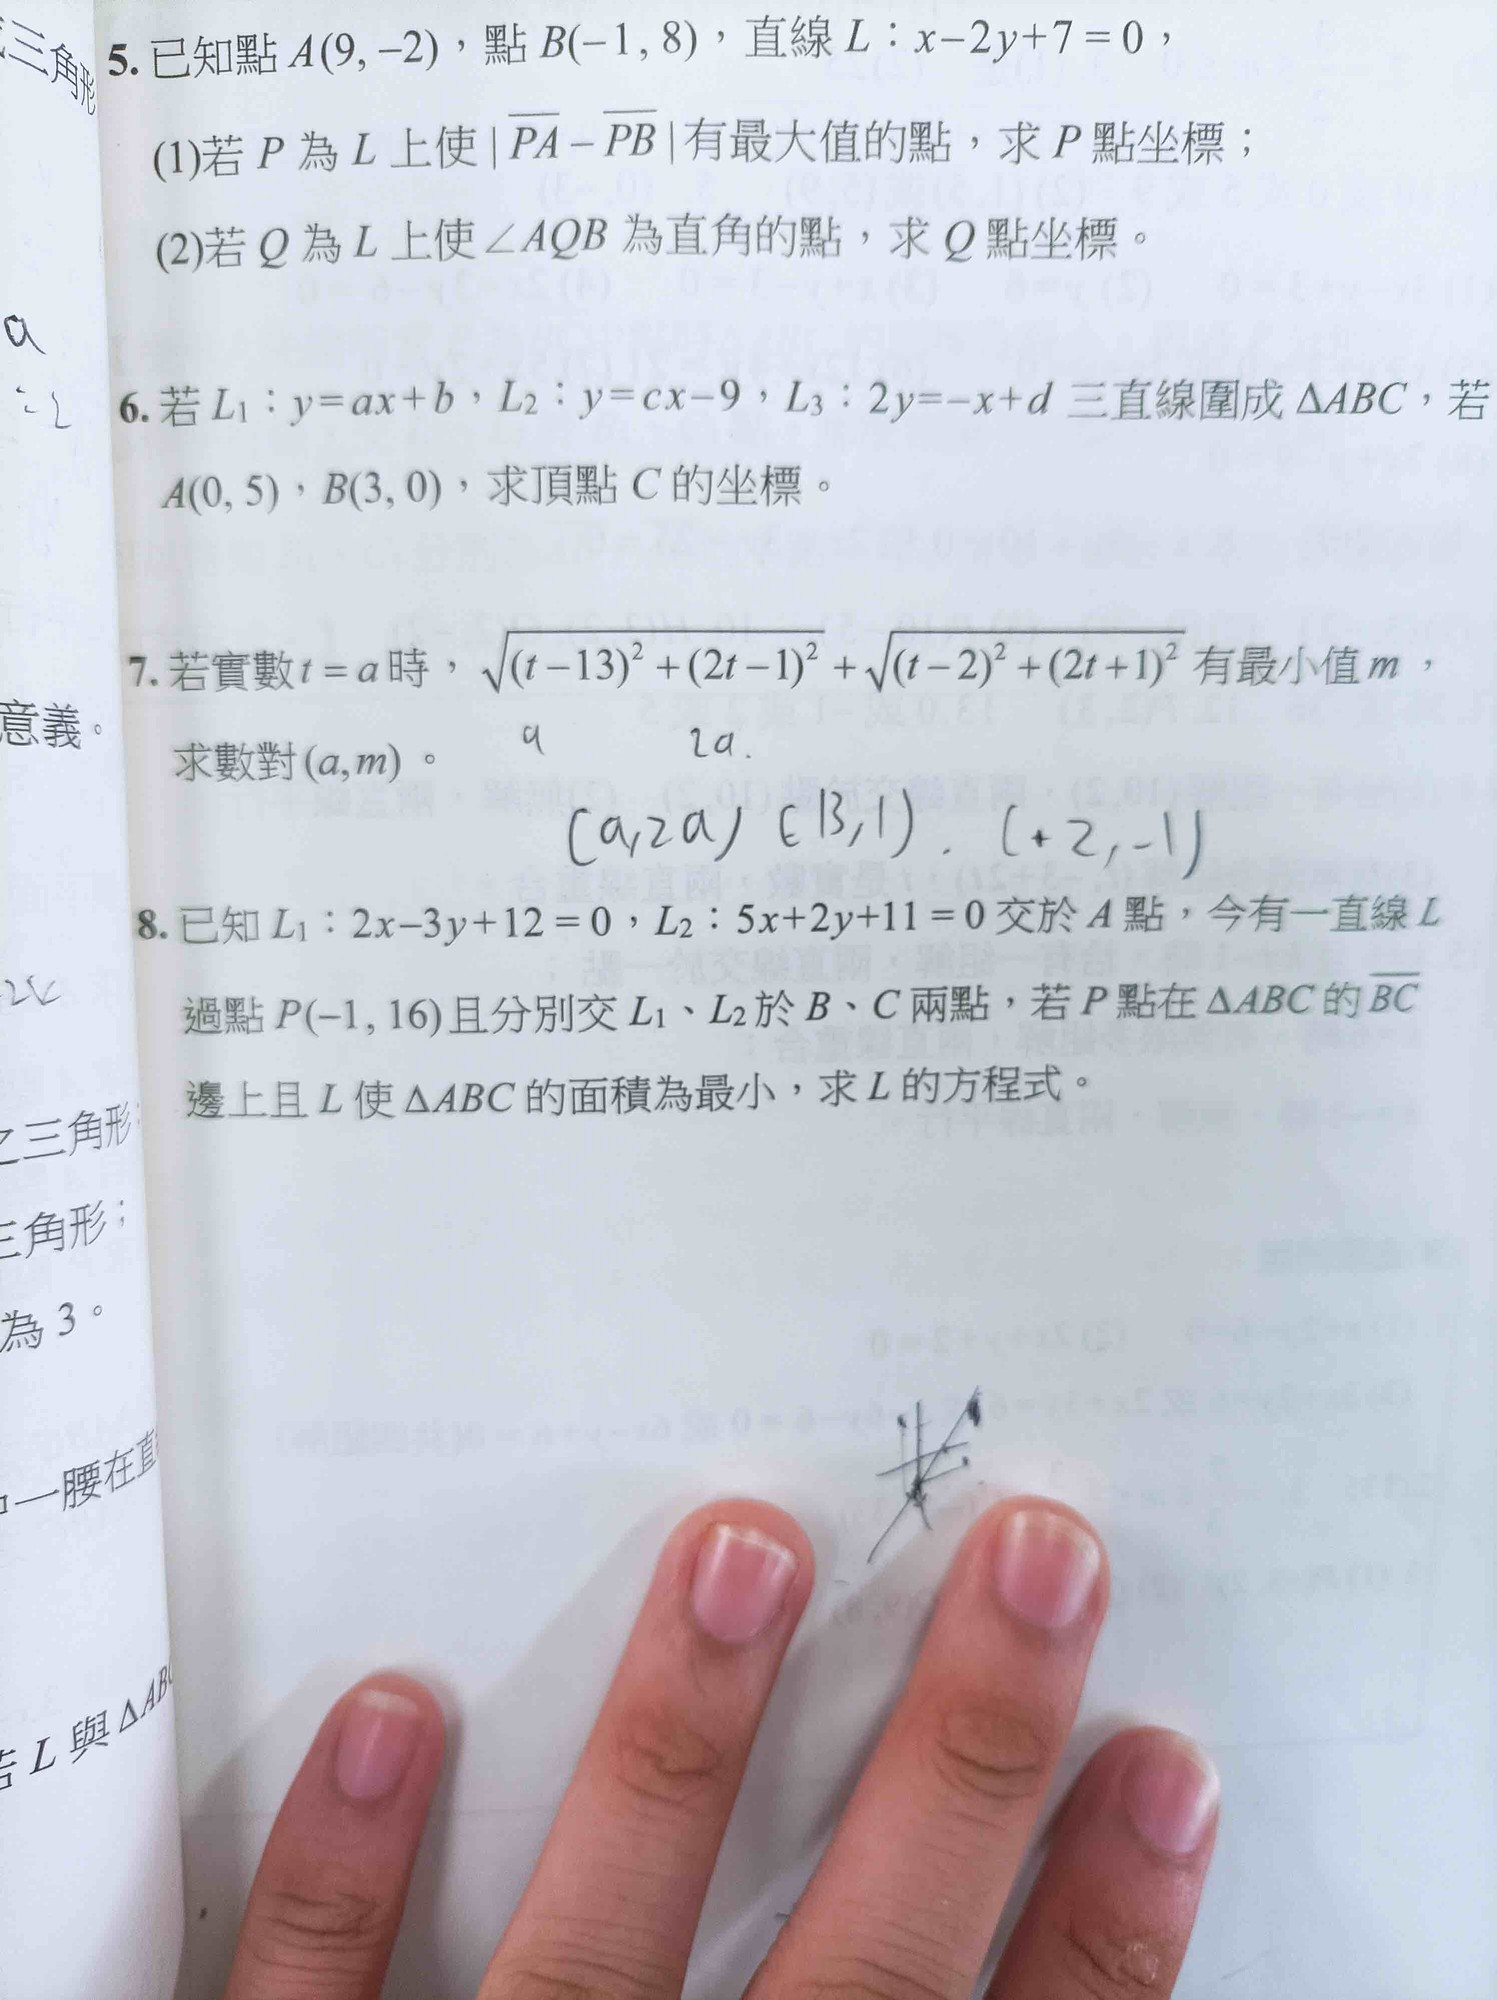 三角形
5. 已知點 A(9, −2)，點 B(−1, 8)，直線 L：x−2y+7 = 0，
(1)若 P 為 L 上使 | PA − PB | 有最大值的點，求 P 點坐標；
(2)若 Q 為 L 上使∠AQB 為直角的點，求 Q 點坐標。
a
6. 若 L₁：y=ax+b，L₂：y=cx−9，L₃：2y=−x+d 三直線圍成 ΔABC，若
A(0, 5)，B(3, 0)，求頂點 C 的坐標。
7. 若實數 t = a 時，√((t−13)²+(2t−1)²) + √((t−2)²+(2t+1)²) 有最小值 m，
意義。
求數對 (a, m)。
a 2a.
(a,2a) (13,1). (+2,-1)
8. 已知 L₁：2x−3y+12 = 0，L₂：5x+2y+11 = 0 交於 A 點，今有一直線 L
過點 P(−1, 16) 且分別交 L₁、L₂ 於 B、C 兩點，若 P 點在 ΔABC 的 BC
邊上且 L 使 ΔABC 的面積為最小，求 L 的方程式。
之三角形
三角形；
為 3。
一腰在直
若 L 與 ΔABC